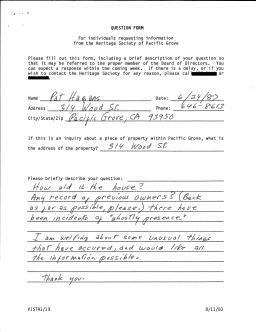 QUESTION FORM
For individuals requesting information
from the Heritage Society of Pacific Grove
Please fill out this form, including a brief description of your question so
that it may be referred to the proper member of the Board of Directors. You
can expect a response within the coming week. If there is a delay, or if you
wish to contact the Heritage Society for any reason, please call
or
Name Pat Hagans Date: 6/24/83
Address 314 Wood St. Phone: 646-8613
City/State/Zip Pacific Grove, CA 93950
If this is an inquiry about a piece of property within Pacific Grove, what is
the address of the property? 314 Wood St.
Please briefly describe your question:
How old is the house?
Any record of previous owners? (Back
as far as possible, please.) there have
been incidents of "ghostly presence."
I am writing about some unusual things
that have occured, and would like all
the information possible.
Thank you.
8/11/83